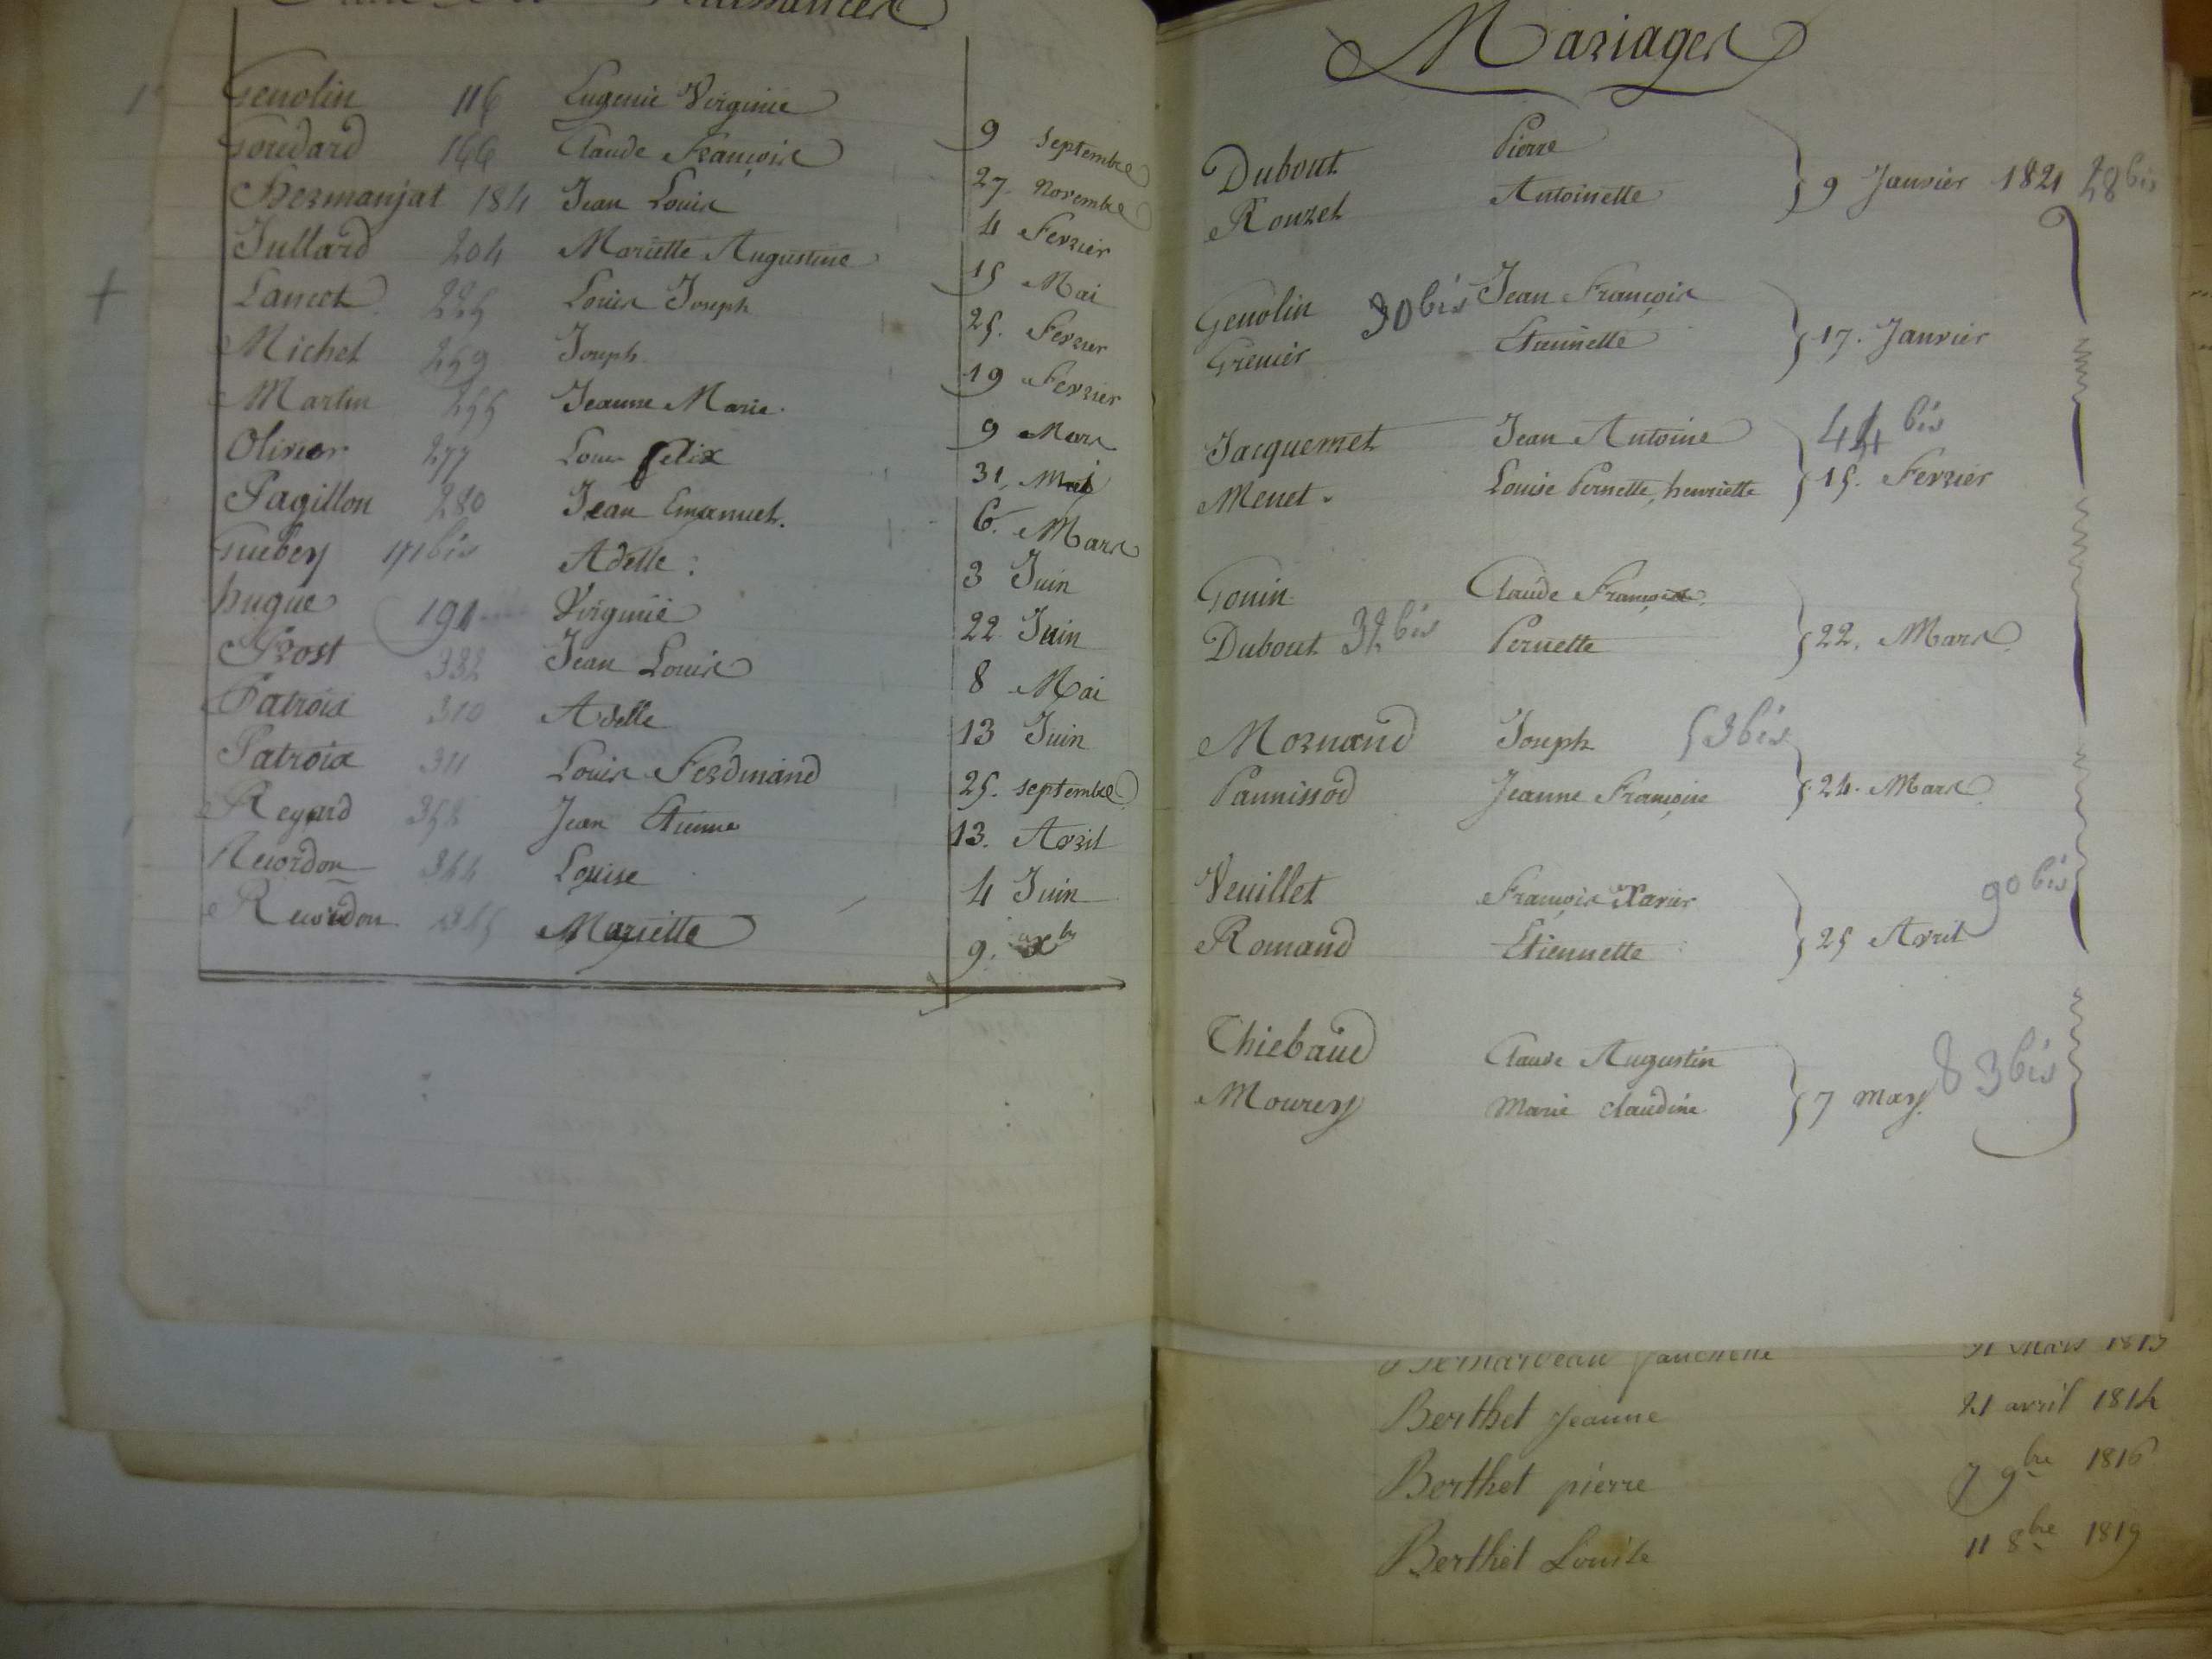 Naissances
Genolin 116 Eugenie Virginie 9 Septembre
Goudard 166 Claude François 27. Novembre
Hermanjat 184 Jean Louis 4 Fevrier
Jullard 204 Mariette Augustine 15 Mai
Lancet 225 Louis Joseph 25. Fevrier
Michet 259 Joseph 19 Fevrier
Martin 255 Jeanne Marie. 9 Mars
Olivier 277 Louis felix 31, Mai
Pagillon 280 Jean Emanuel. 6. Mars
Guebey 171 bis Adelle: 3 Juin
hugue 191 Virginie 22 Juin
Prost 332 Jean Louis 8 Mai
Patrois 310 Adelle 13 Juin
Patrois 311 Louis Ferdinand 25. septembre
Regard 358 Jean Etienne 13. Avril
Recordon 344 Louise 4 Juin
Recordon 345 Mariette 9. xbre
Mariages
Dubout Pierre
Rouzet Antoinette } 9 Janvier 1821 28 bis
Genolin 30 bis Jean François
Grenier Etiennette } 17. Janvier
Jacquemet Jean Antoine 44 bis
Menet. Louise Pernette, henriette } 15. Fevrier
Gouin Claude François
Dubout 32 bis Pernette } 22. Mars
Mornand Joseph 53 bis
Pannissod Jeanne Françoise } 24. Mars
Veuillet François Xavier 90 bis
Romand Etiennette } 25 Avril
Thiebaud Claude Augustin 83 bis
Mourey Marie claudine } 7 may
31 Mars 1813
Berthet Jeanne 21 avril 1814
Berthet pierre 7 9bre 1816
Berthet Louise 11 8bre 1819